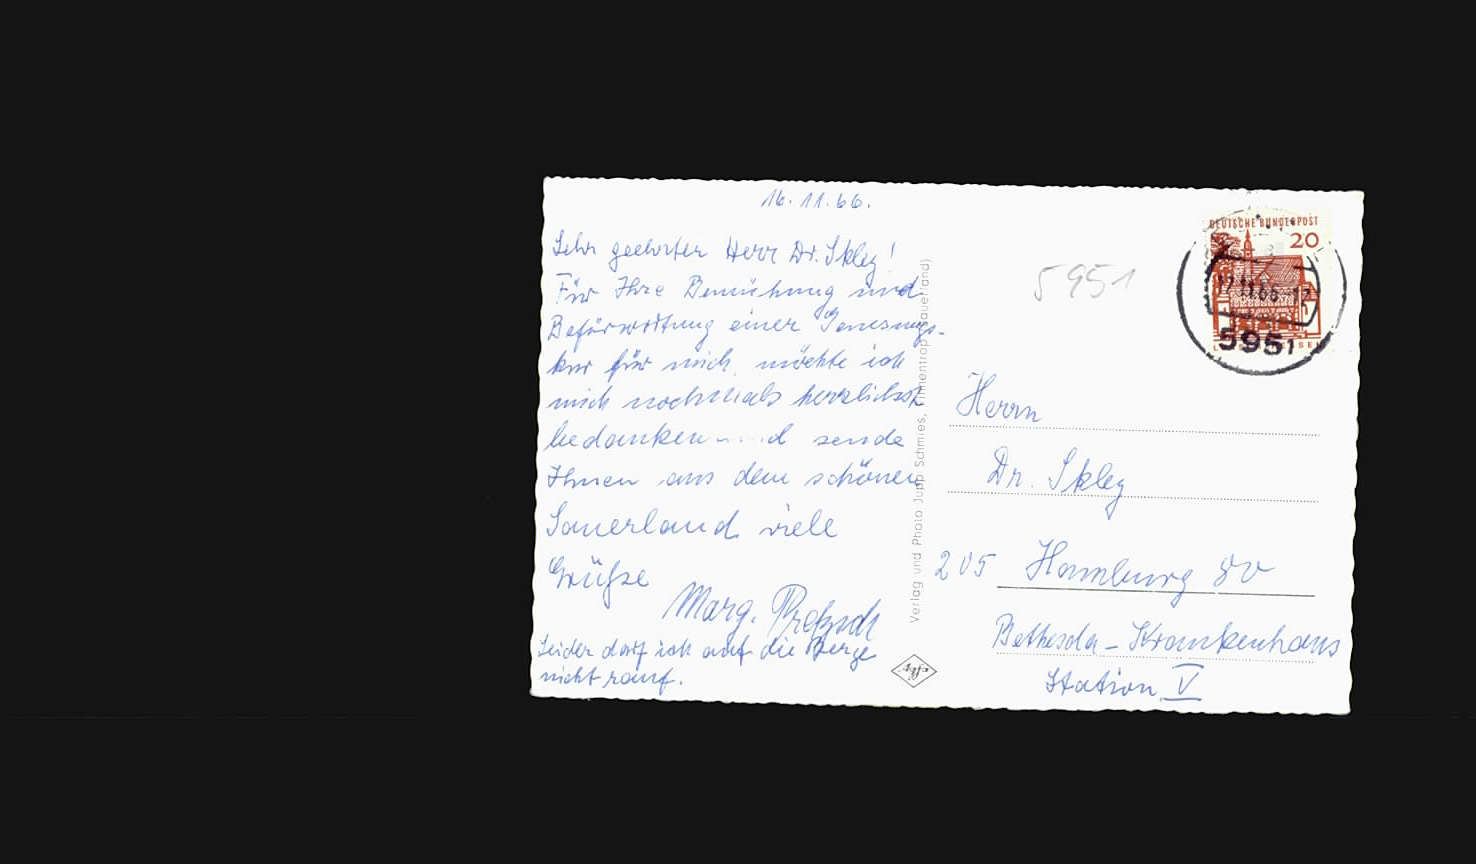 16.11.66.
Sehr geehrter Herr Dr. Skley!
Für Ihre Bemühung und
Befürwortung einer Genesungs-
kur für mich, möchte ich
mich nochmals herzlichst
bedanken und sende
Ihnen aus dem schönen
Sauerland viele
Grüße
Marg.
Leider darf ich auf die Berge
nicht rauf.
Verlag und Photo Jupp Schmies, Finnentrop (Sauerland)
Agfa
5951
DEUTSCHE BUNDESPOST
20
5951
Herrn
Dr. Skley
205 Hamburg 80
Bethesda-Krankenhaus
Station V